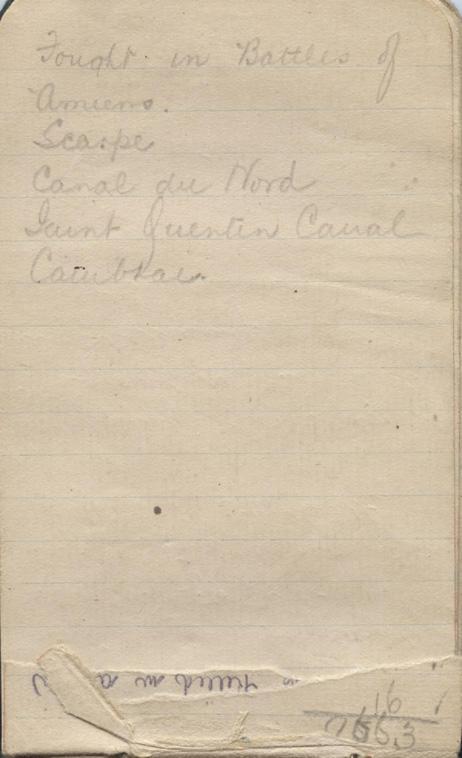 Fought in Battles of
Amiens.
Scarpe
Canal du Nord
Saint Quentin Canal
Cambrai.
killed in a
16